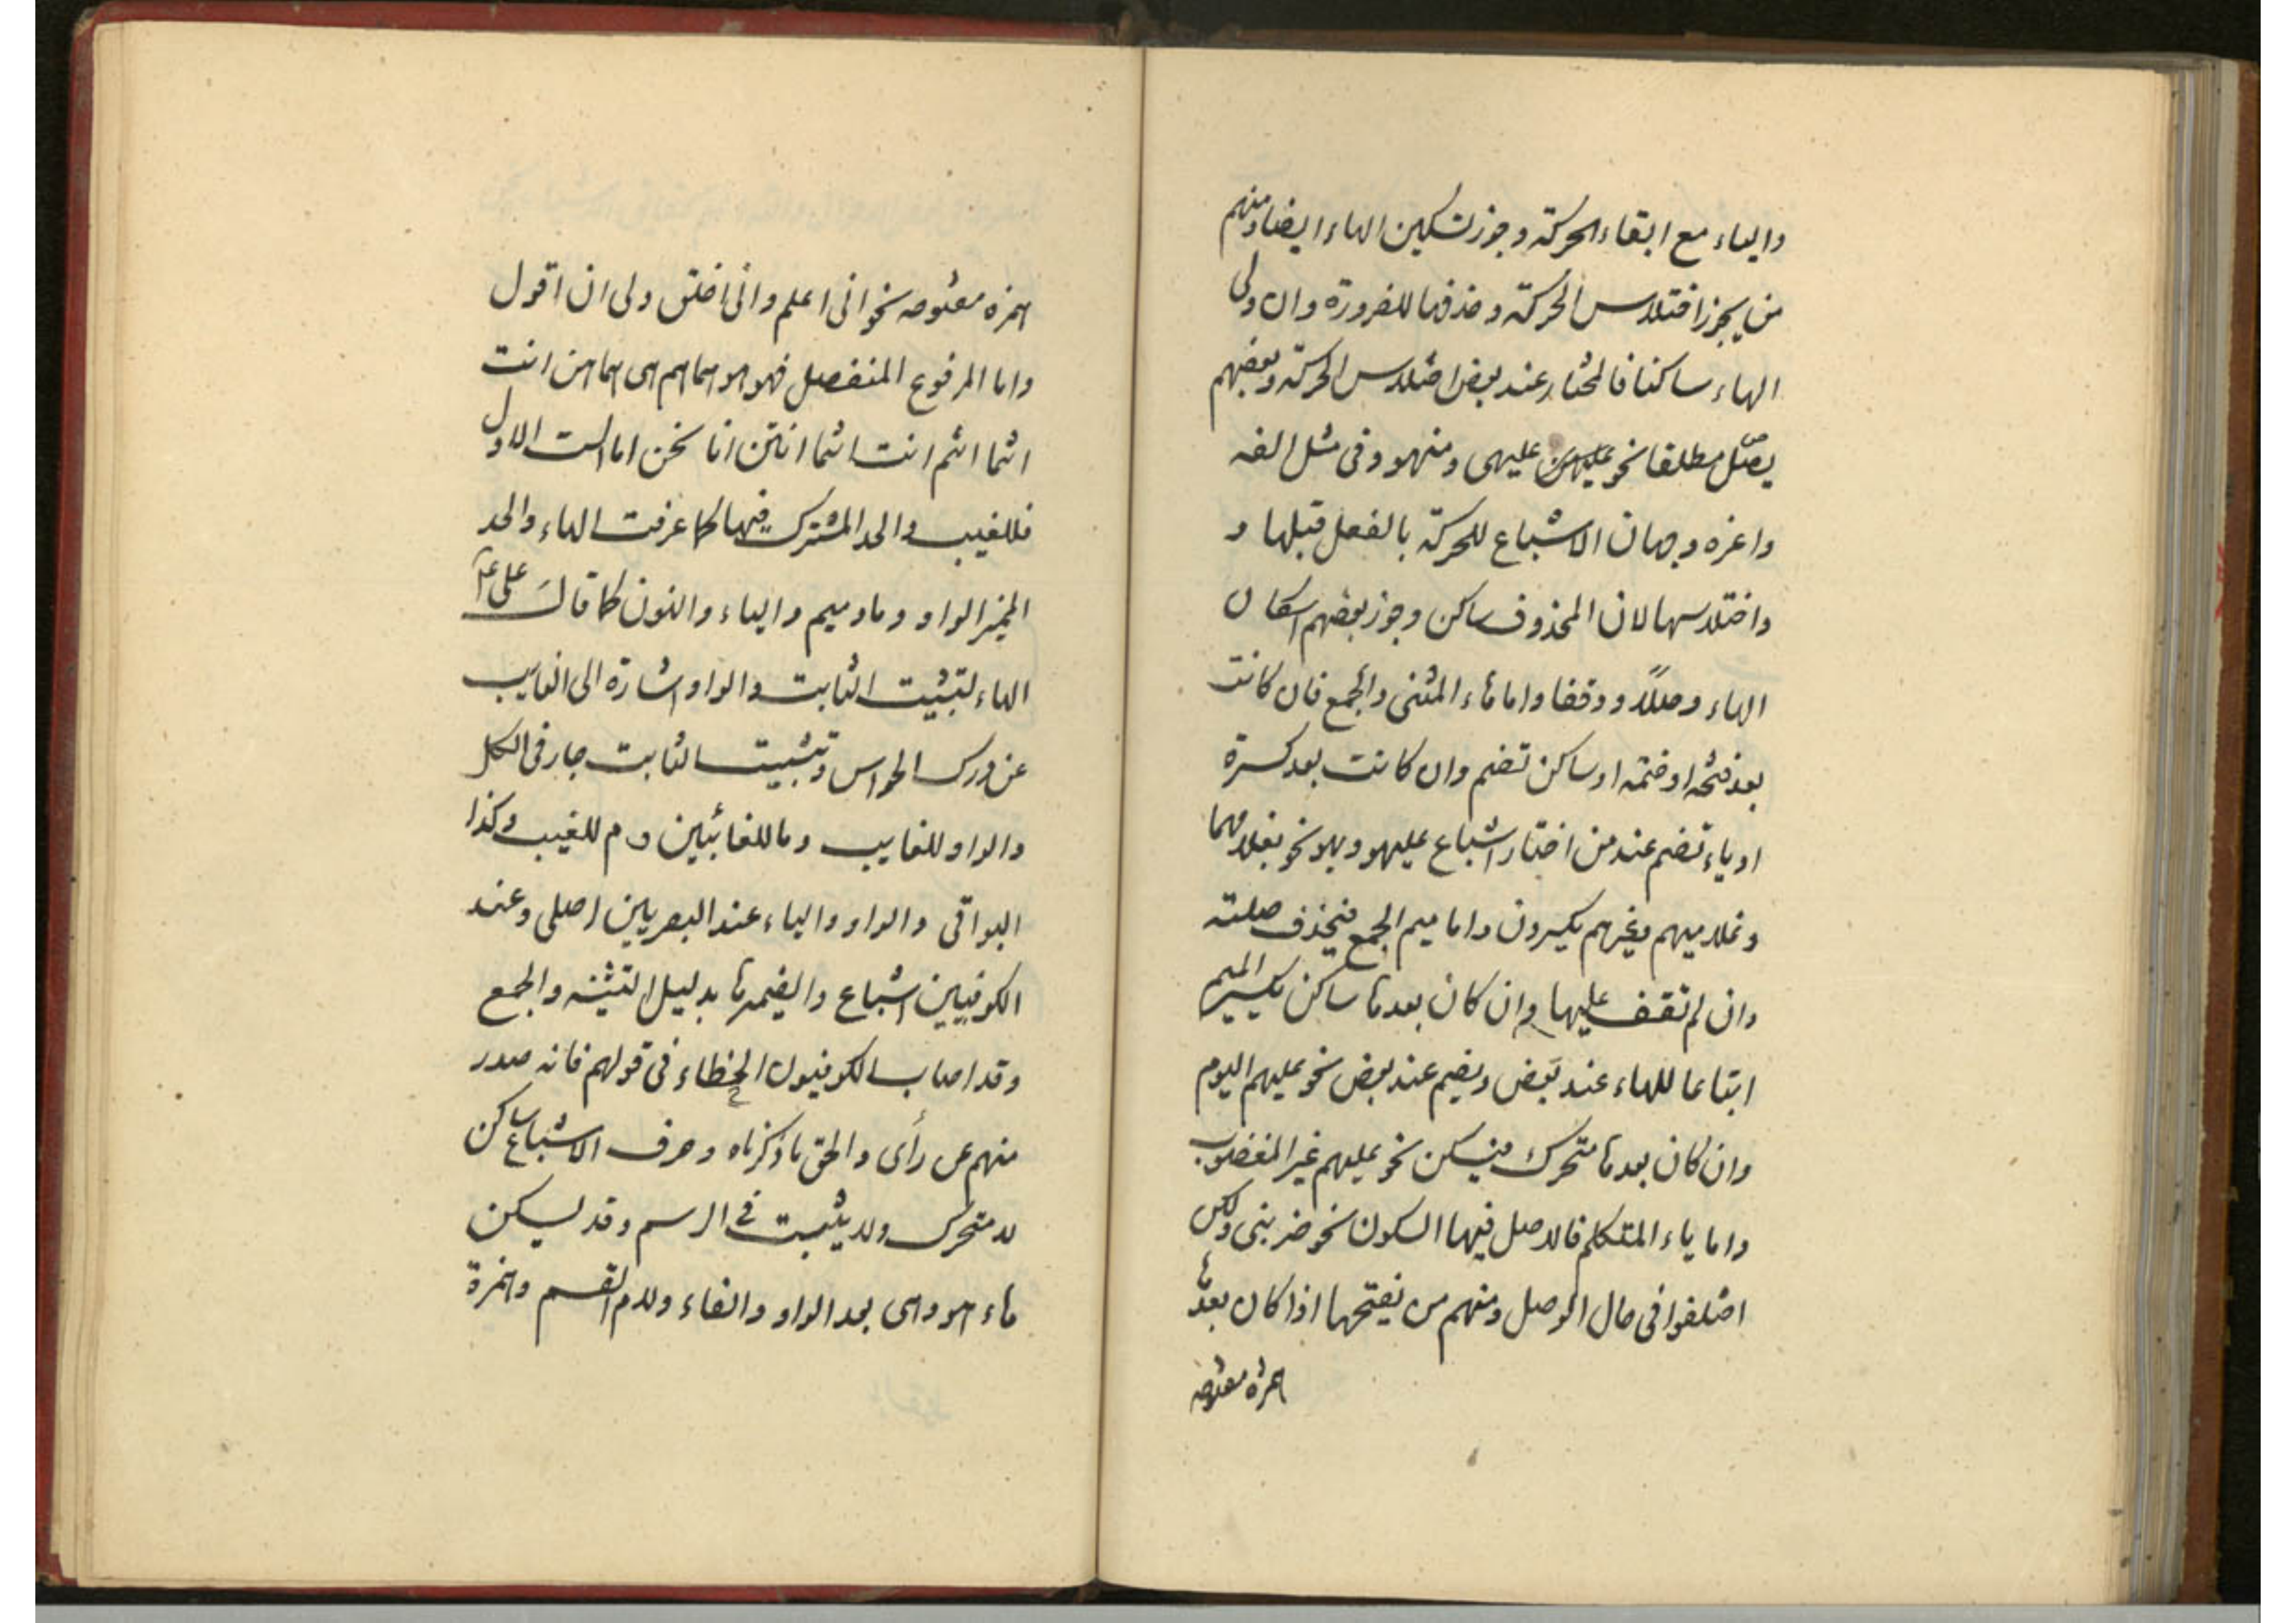 والياء مع ابقاء الحركة وجوز تسكين الهاء ايضا ومنهم
من يجوز اختلاس الحركة وحذفها للضرورة وان ولى
الهاء ساكنا فالمختار عند بعض اختلاس الحركة وبعضهم
يصل مطلقا نحو عليهى ومنهو وفى مثل الفه
واغزه وجهان الاشباع للحركة بالفعل قبلها و
واختلاسها لان المحذوف ساكن وجوز بعضهم اسكان
الهاء وصلاً ووقفا واما هاء المثنى والجمع فان كانت
بعد فتحه او ضمه او ساكن تضم وان كانت بعد كسرة
او ياء تضم عند من اختار اشباع عليهو وبهو نحو بغلامهما
وغلاميهم وغيرهم يكسرون واما ميم الجمع فيحذف صلته
وان لم تقف عليها وان كان بعدها ساكن يكسر الميم
اتباعا للهاء عند بعض ويضم عند بعض نحو عليهم اليوم
وان كان بعدها متحرك فيسكن نحو عليهم غير المغضوب
واما ياء المتكلم فالاصل فيها السكون نحو ضربنى ولكن
اختلفوا فى حال الوصل ومنهم من يفتحها اذا كان بعدها
همزه مقطوعه
همزه مقطوعه نحو انى اعلم وانى اخلق ولى ان اقول
واما المرفوع المنفصل فهو هو هما هم هى هما هن انت
انتما انتم انت انتما انتن انا نحن اما الست الاول
فللغيب والحد المشترك فيها كما عرفت الهاء والحد
المميز الواو وما وميم والياء والنون كما قال على ع
الهاء لتثبيت الثابت والواو اشارة الى الغايب
عن درك الحواس وتثبيت الثابت جار فى الكل
والواو للغايب وما للغائبين وم للغيب وكذا
البواقى والواو والياء عند البصريين اصلى وعند
الكوفيين اشباع والضمير ها بدليل التثنيه والجمع
وقد اصاب الكوفيون الخطاء فى قولهم فانه صدر
منهم عن رأى والحق ما ذكرناه وحرف الاشباع ساكن
لا متحرك ولا يثبت فى الرسم وقد يسكن
هاء هو وهى بعد الواو والفاء ولام القسم وهمزة